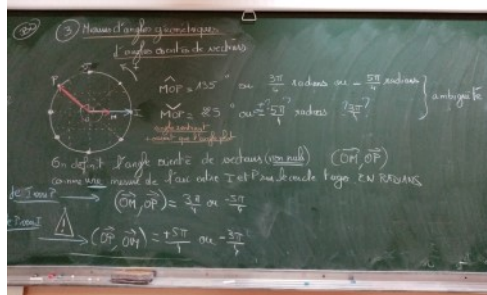 ③ Mesures d'angles géométriques
d'angles orientés de vecteurs
P
M
I
MOP = 135° ou 3π/4 radians ou - 5π/4 radians
MOP = 225° ou 5π/4 radians ? 3π/4 ?
ambiguïté
angle rentrant
On définit l'angle orienté de vecteurs (non nuls) (OM, OP)
comme une mesure de l'arc entre I et P sur le cercle trigo EN RADIANS
de I vers P → (OM, OP) = 3π/4 ou -5π/4
de P vers I → (OP, OM) = +5π/4 ou -3π/4